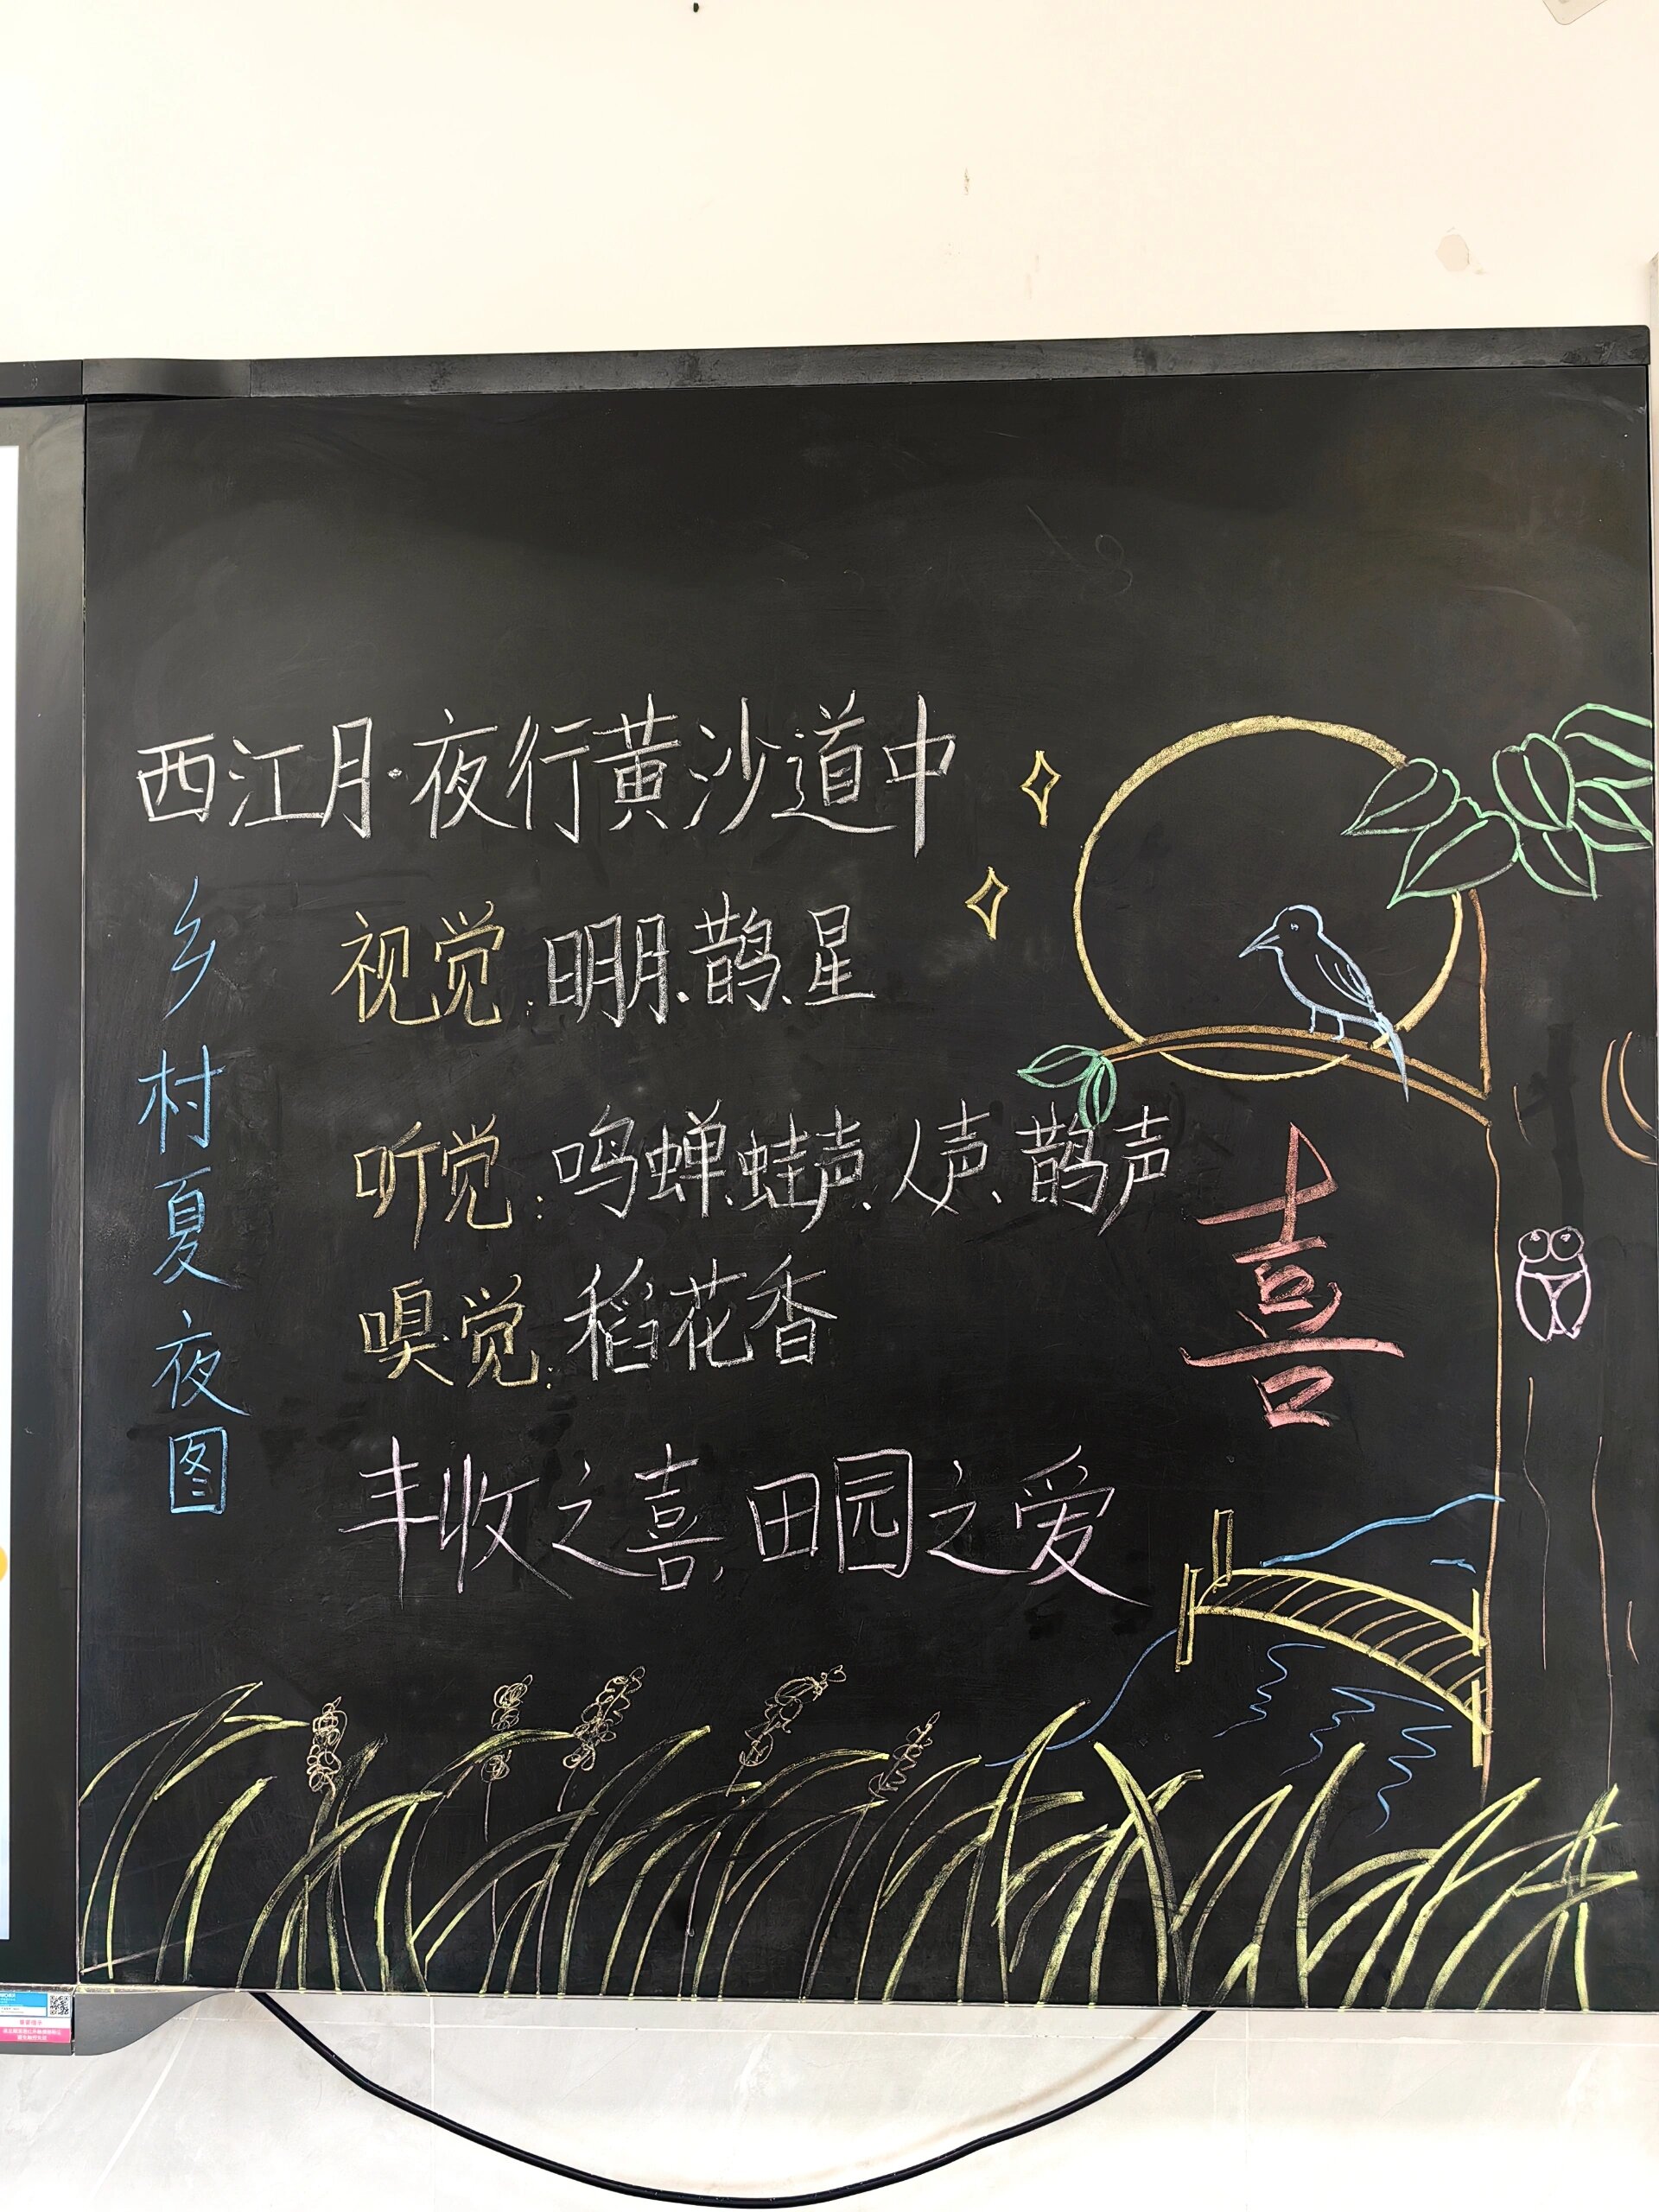 西江月·夜行黄沙道中
乡村夏夜图
视觉:明月、鹊、星
听觉:鸣蝉、蛙声、人声、鹊声
嗅觉:稻花香
喜
丰收之喜,田园之爱